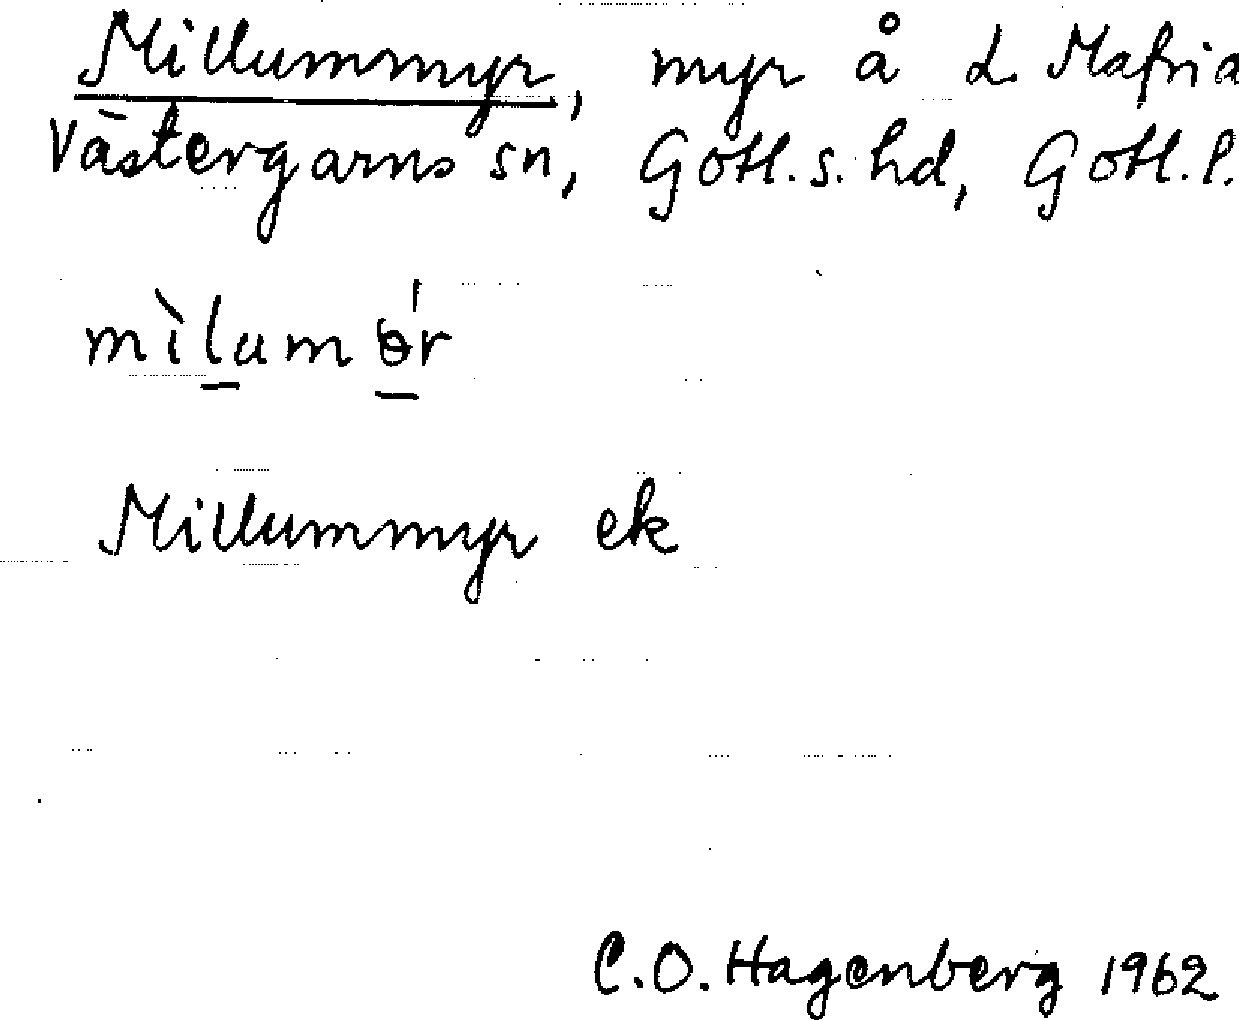 Millummyr, myr å L. Mafria
Västergarns sn, Gotl. s. hd, Gotl. l.
Millummyr ek
C.O. Hagenberg 1962